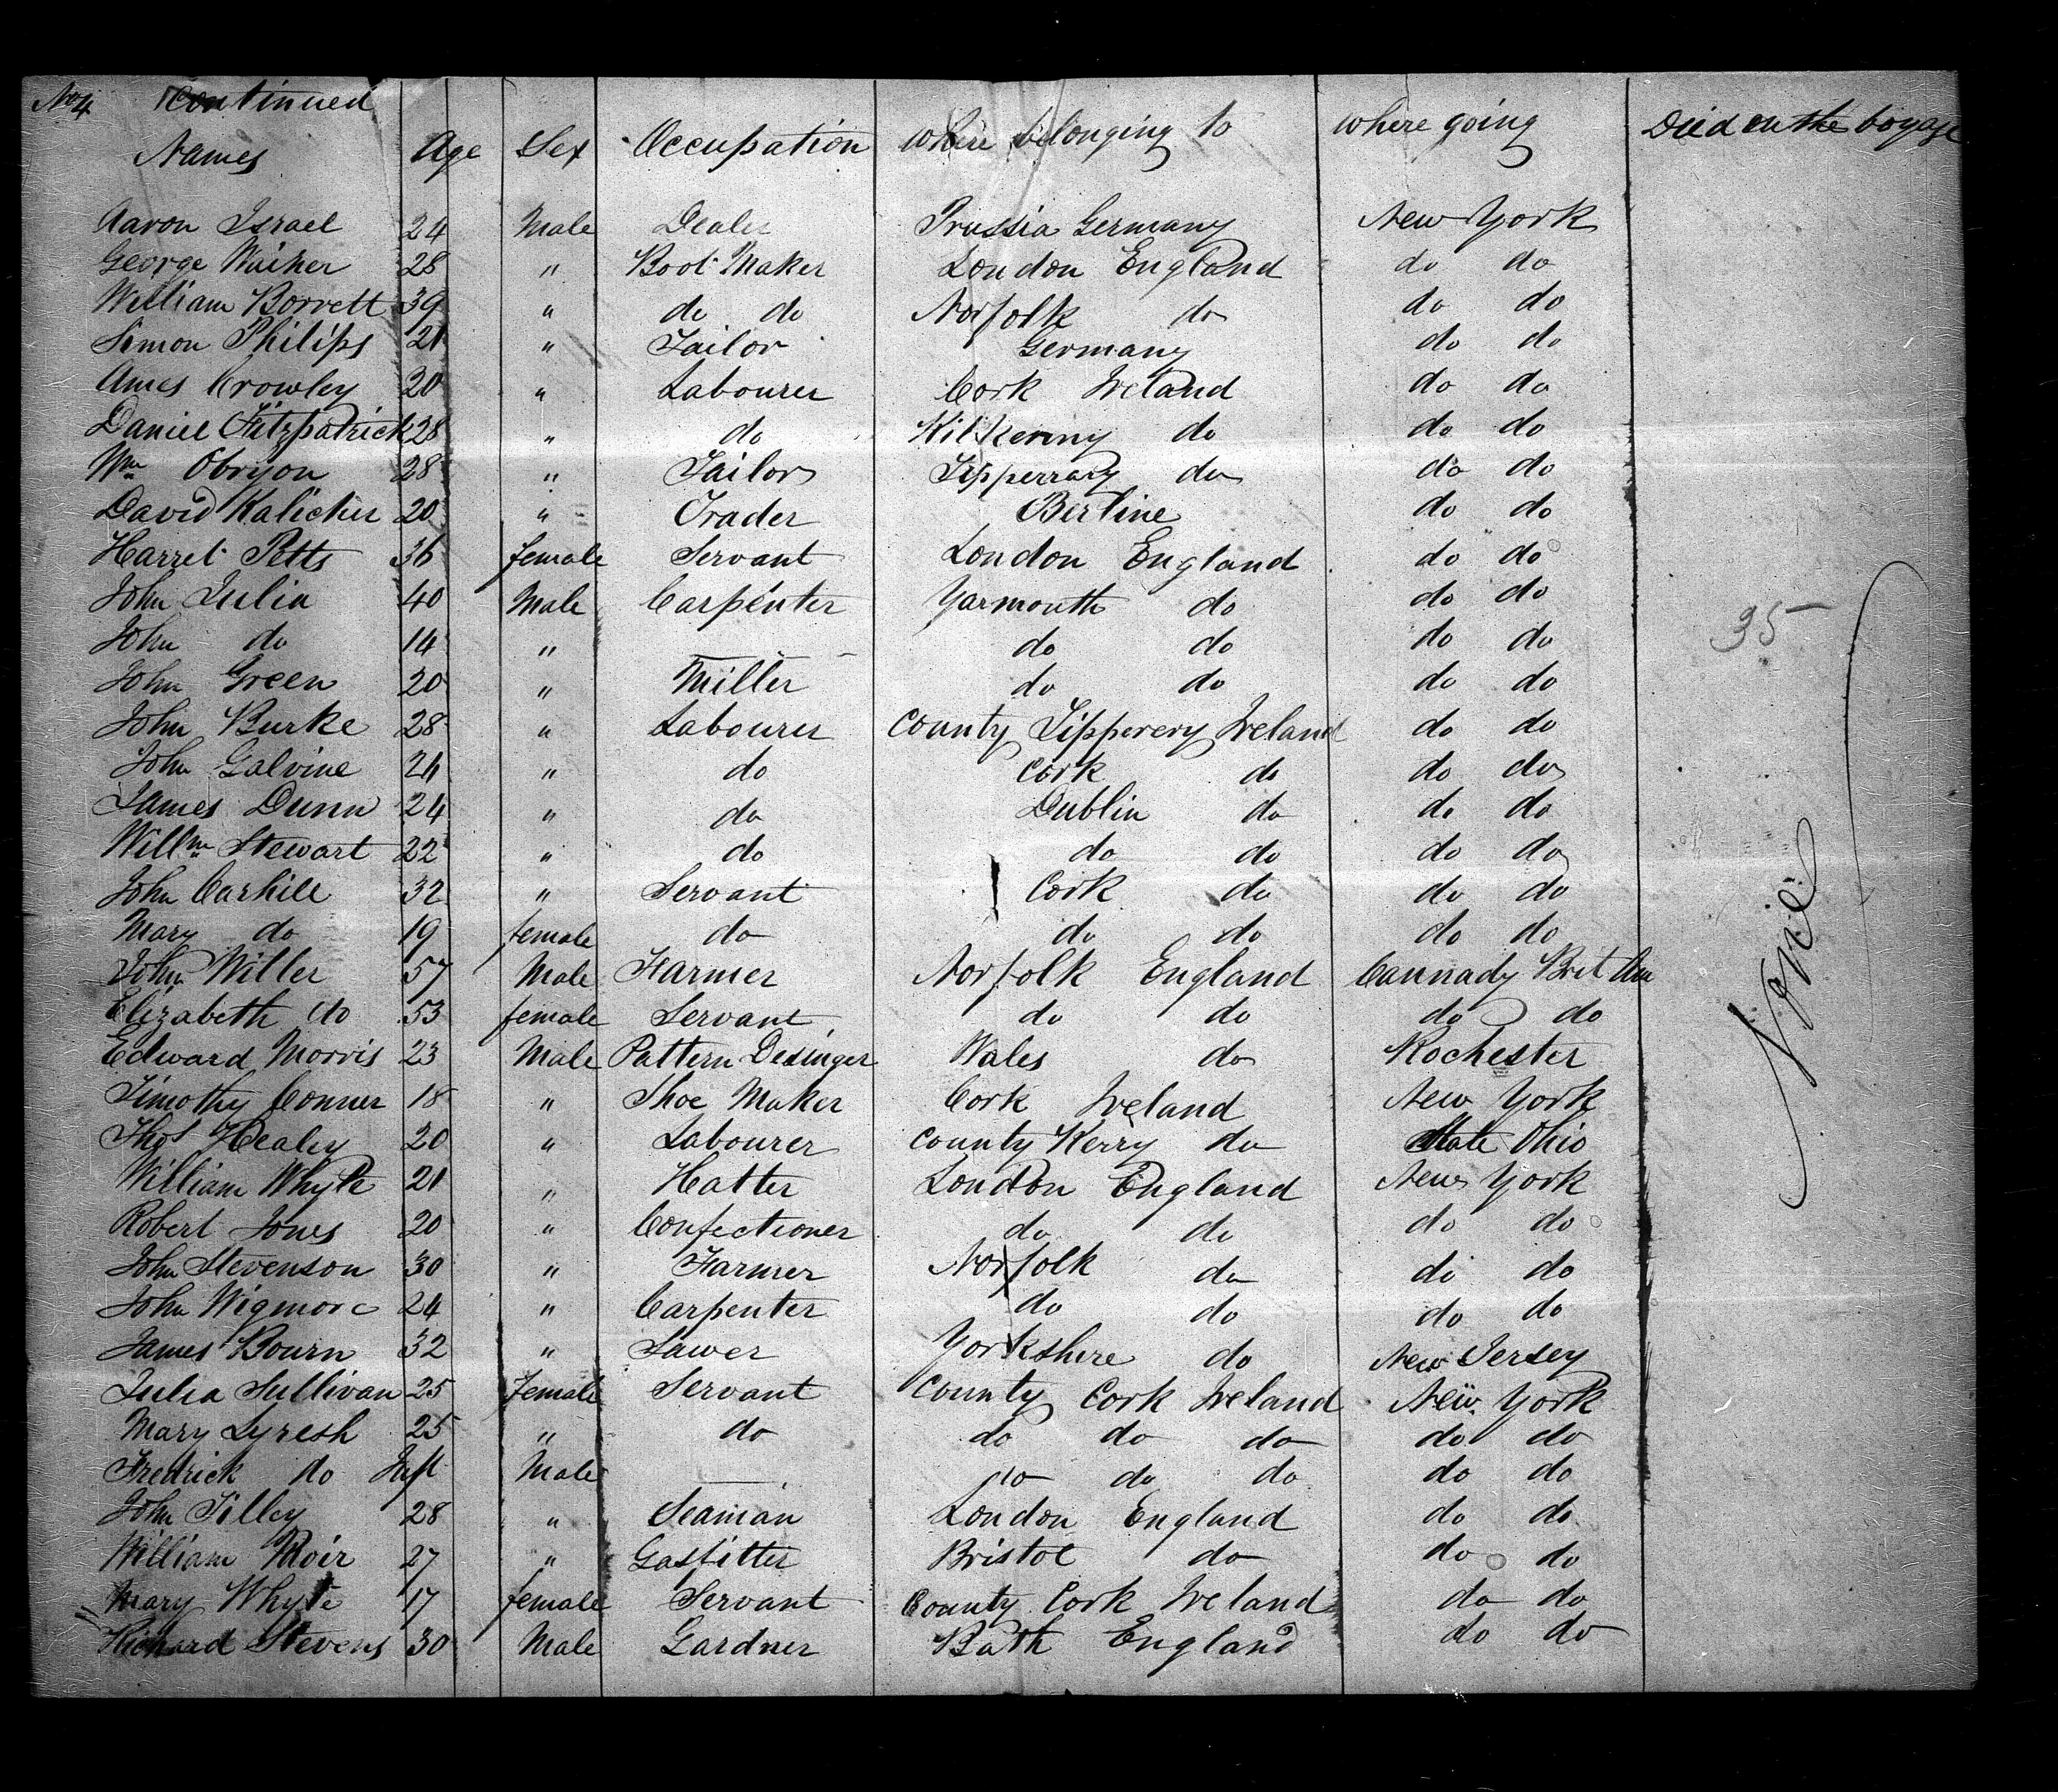 No 4 Continued
Names Age Sex Occupation where belonging to where going Died on the voyage
Aaron Israel 24 Male Dealer Prussia Germany New York
George 28 " Boot Maker London England do do
William Borrett 39 " do do Norfolk do do do
Simon Philips 21 " Tailor Germany do do
Ames Crowley 20 " Labourer Cork Ireland do do
Daniel Fitzpatrick 28 " do Kilkenny do do do
Wm Obryon 28 " Tailor Tipperrary do do do
David 20 " Trader Berline do do
Harret Petts 36 female Servant London England do do
John Julia 40 Male Carpenter Yarmouth do do do
John do 14 " — do do do do
John Green 20 " Miller do do do do
John Burke 28 " Labourer County Tipperery Ireland do do
John Galvine 24 " do Cork do do do
James Dunn 24 " do Dublin do do do
Willm Stewart 22 " do do do do do
John Carhill 32 " Servant Cork do do do
Mary do 19 female do do do do do
John Willer 57 Male Farmer Norfolk England Cannady Brit Am
Elizabeth do 53 female Servant do do do do
Edward Morris 23 Male Pattern Desinger Wales do Rochester
Timothy Conner 18 " Shoe Maker Cork Ireland New York
Thos Healey 20 " Labourer County Kerry do State Ohio
William Whyte 21 " Hatter London England New York
Robert Jones 20 " Confectioner do do do do
John Stevenson 30 " Farmer Norfolk do do do
John Wigmore 24 " Carpenter do do do do
James Bourn 32 " Sawer Yorkshire do New Jersey
Julia Sullivan 25 Female Servant County Cork Ireland New York
Mary Lyresh 25 " do do do do do do
Fredrick do Inft Male — do do do do do
John Tilley 28 " Seaman London England do do
William 27 " Gasfitter Bristol do do do
Mary Whyte 17 female Servant County Cork Ireland do do
Richard Stevens 30 Male Gardner Bath England do do
35
None